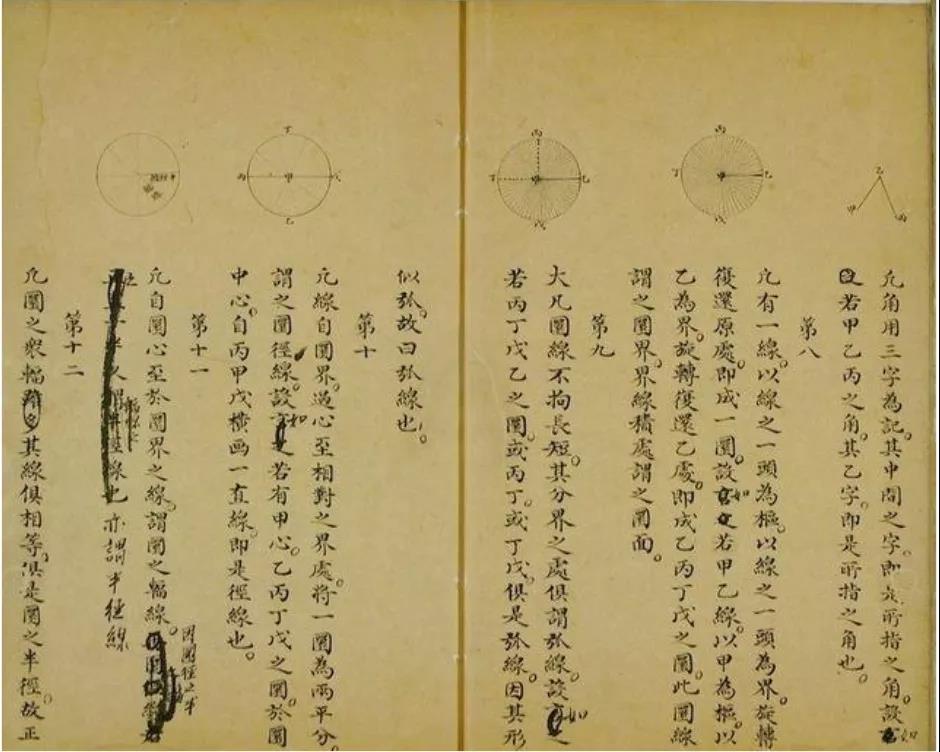 乙
甲
丙
凢角用三字為記。其中間之字。即是所指之角。設如
若甲乙丙之角。其乙字。即是所指之角也。
第八
丙
甲
乙
丁
戊
凢有一線。以線之一頭為樞。以線之一頭為界。旋轉
復還原處。即成一圜。設如若甲乙線。以甲為樞。以
乙為界。旋轉復還乙處。即成乙丙丁戊之圜。此圜線
謂之圜界。界線積處謂之圜面。
第九
丙
丁
甲
乙
戊
大凢圜線不拘長短。其分界之處俱謂弧線。設如
若丙丁戊乙之圜。或丙丁。或丁戊。俱是弧線。因其形
似弧。故曰弧線也。
第十
丁
丙
甲
戊
乙
凢線自圜界。過心至相對之界處。將一圜為兩平分。
謂之圜徑線。設如若有甲心。乙丙丁戊之圜。於圜
中心。自丙甲戊橫画一直線。即是徑線也。
第十一
凢自圜心至於圜界之線。謂圜之輻線。
因圜徑之半
線也
亦謂半徑線
第十二
凢圜之衆輻其線俱相等。俱是圜之半徑。故正